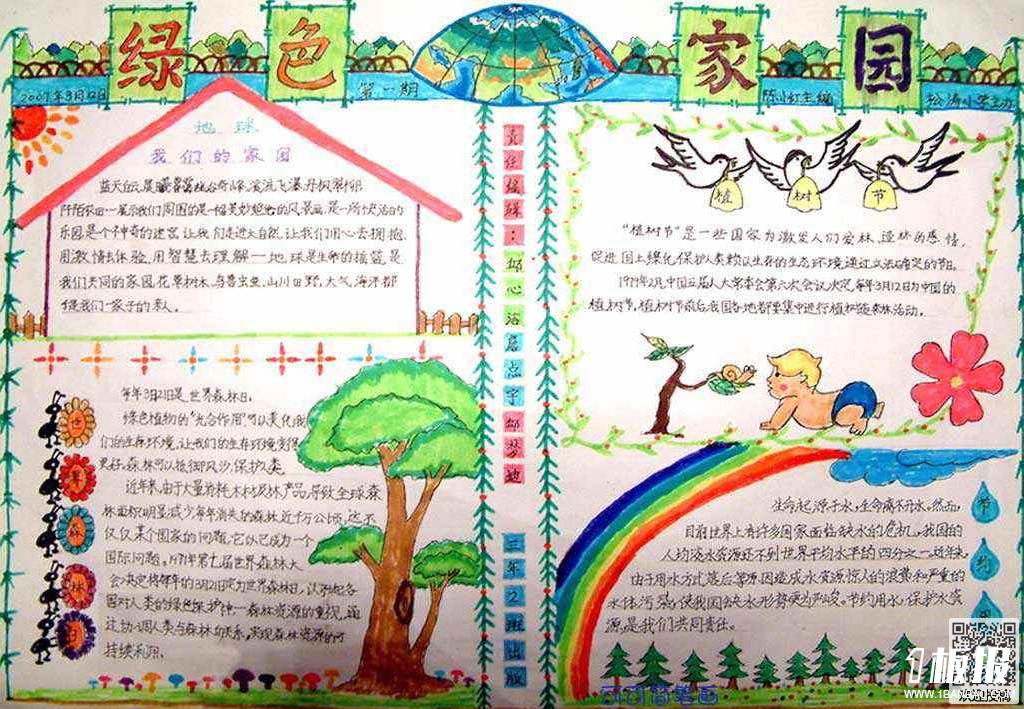 绿色家园
2007年3月12日
第一期
陈小红主编
松涛小学主办
地球
我们的家园
乐园是个神奇的迷宫,让我们走进大自然,让我们用心去拥抱,
用激情去体验,用智慧去理解一地球是生命的摇篮,是
我们共同的家园,花草树木,鸟兽虫鱼,山川田野,大气,海洋都
是我们一家子的亲人。
责任编辑:
三年2班出版
植树节
“植树节”是一些国家为激发人们爱林、造林的感情,
促进国土绿化,保护人类赖以生存的生态环境,通过立法确定的节日。
1979年2月,中国五届人大常委会第六次会议决定,每年3月12日为中国的
植树节,植树节前后,我国各地都要集中进行植树造林活动。
世界森林日
每年3月21日是世界森林日。
绿色植物的“光合作用”可以美化我
们的生存环境,让我们的生存环境变得
更好,森林可以抵御风沙,保护人类
近年来,由于大量消耗木材及林产品,导致全球森
林面积明显减少,每年消失的森林近千万公顷,这不
仅仅某个国家的问题,它以已成为一个
国际问题。1971年第七届世界森林大
会决定将每年的3月21日定为世界森林日,以引起各
国对人类的绿色保护神一森林资源的重视,通
过协调人类与森林的关系,实现森林资源的可
持续利用。
节约
生命起源于水,生命离不开水,然而,
目前世界上有许多国家面临缺水的危机,我国的
人均淡水资源还不到世界平均水平的四分之一,近年来,
由于用水方式落后等原因造成水资源惊人的浪费和严重的
水体污染,使我国缺水形势更为严峻,节约用水,保护水资
源,是我们共同责任。
1板报
WWW.1BANBAO.COM